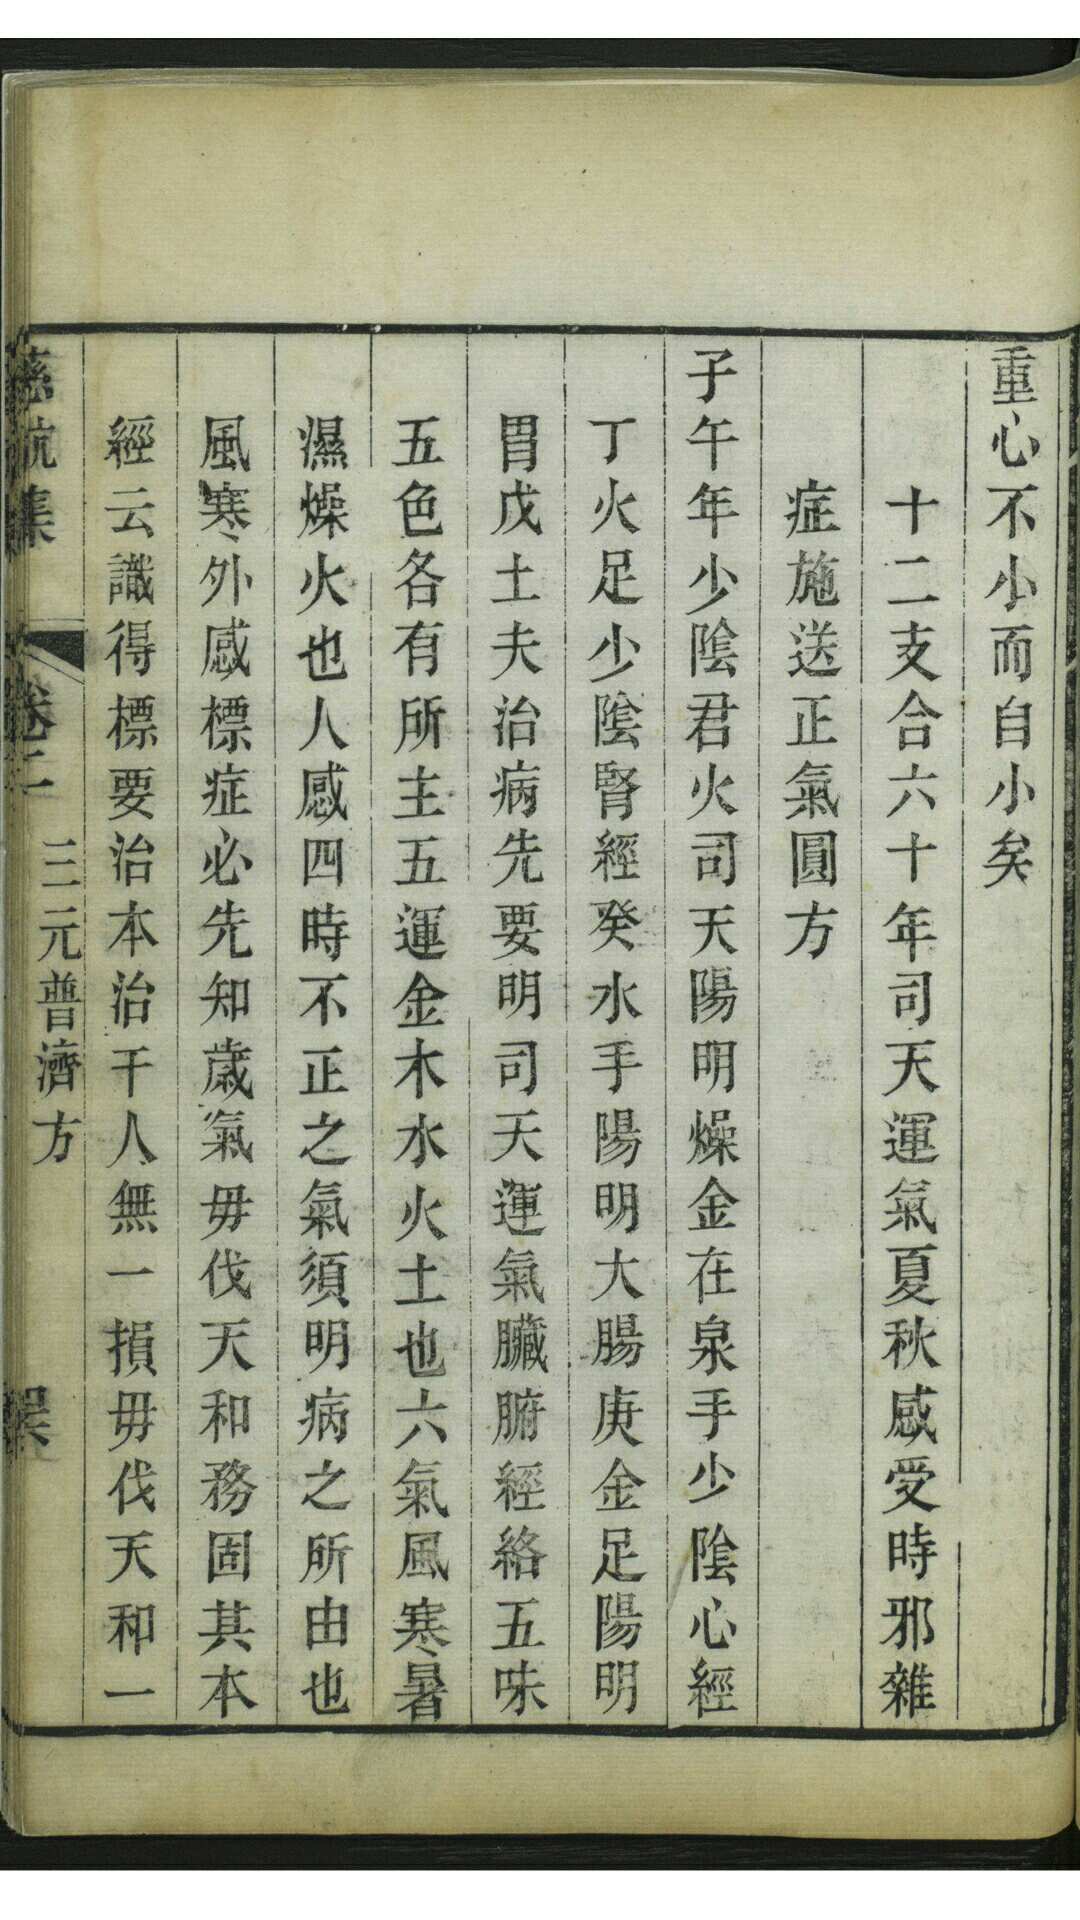 重心不小而自小矣
十二支合六十年司天運氣夏秋感受時邪雜
症施送正氣圓方
子午年少陰君火司天陽明燥金在泉手少陰心經
丁火足少陰腎經癸水手陽明大腸庚金足陽明
胃戊土夫治病先要明司天運氣臟腑經絡五味
五色各有所主五運金木水火土也六氣風寒暑
濕燥火也人感四時不正之氣須明病之所由也
風寒外感標症必先知歲氣毋伐天和務固其本
經云識得標要治本治千人無一損毋伐天和一
慈航集 卷二 三元普濟方